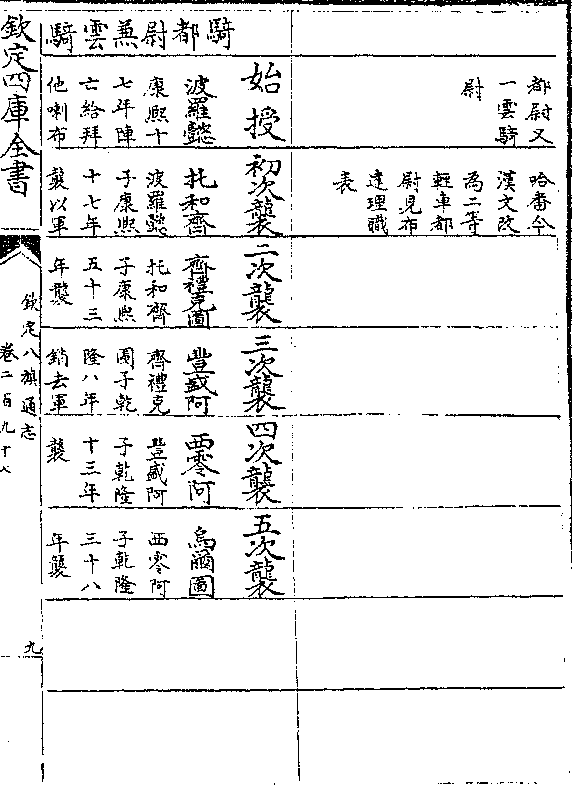 都尉又
一雲騎
尉
哈番今
漢文改
為二等
輕車都
尉見布
達理職
表
騎都尉兼雲騎
始授
波羅懿
康熙十
七年陣
亡給拜
他喇布
初次襲
托和齊
波羅懿
子康熙
十七年
襲以軍
二次襲
齊禮克圖
托和齊
子康熙
五十三
年襲
三次襲
豐盛阿
齊禮克
圖子乾
隆八年
銷去軍
四次襲
西零阿
豐盛阿
子乾隆
十三年
襲
五次襲
烏爾圖
西零阿
子乾隆
三十八
年襲
欽定四庫全書
欽定八旗通志
卷二百九十七
九